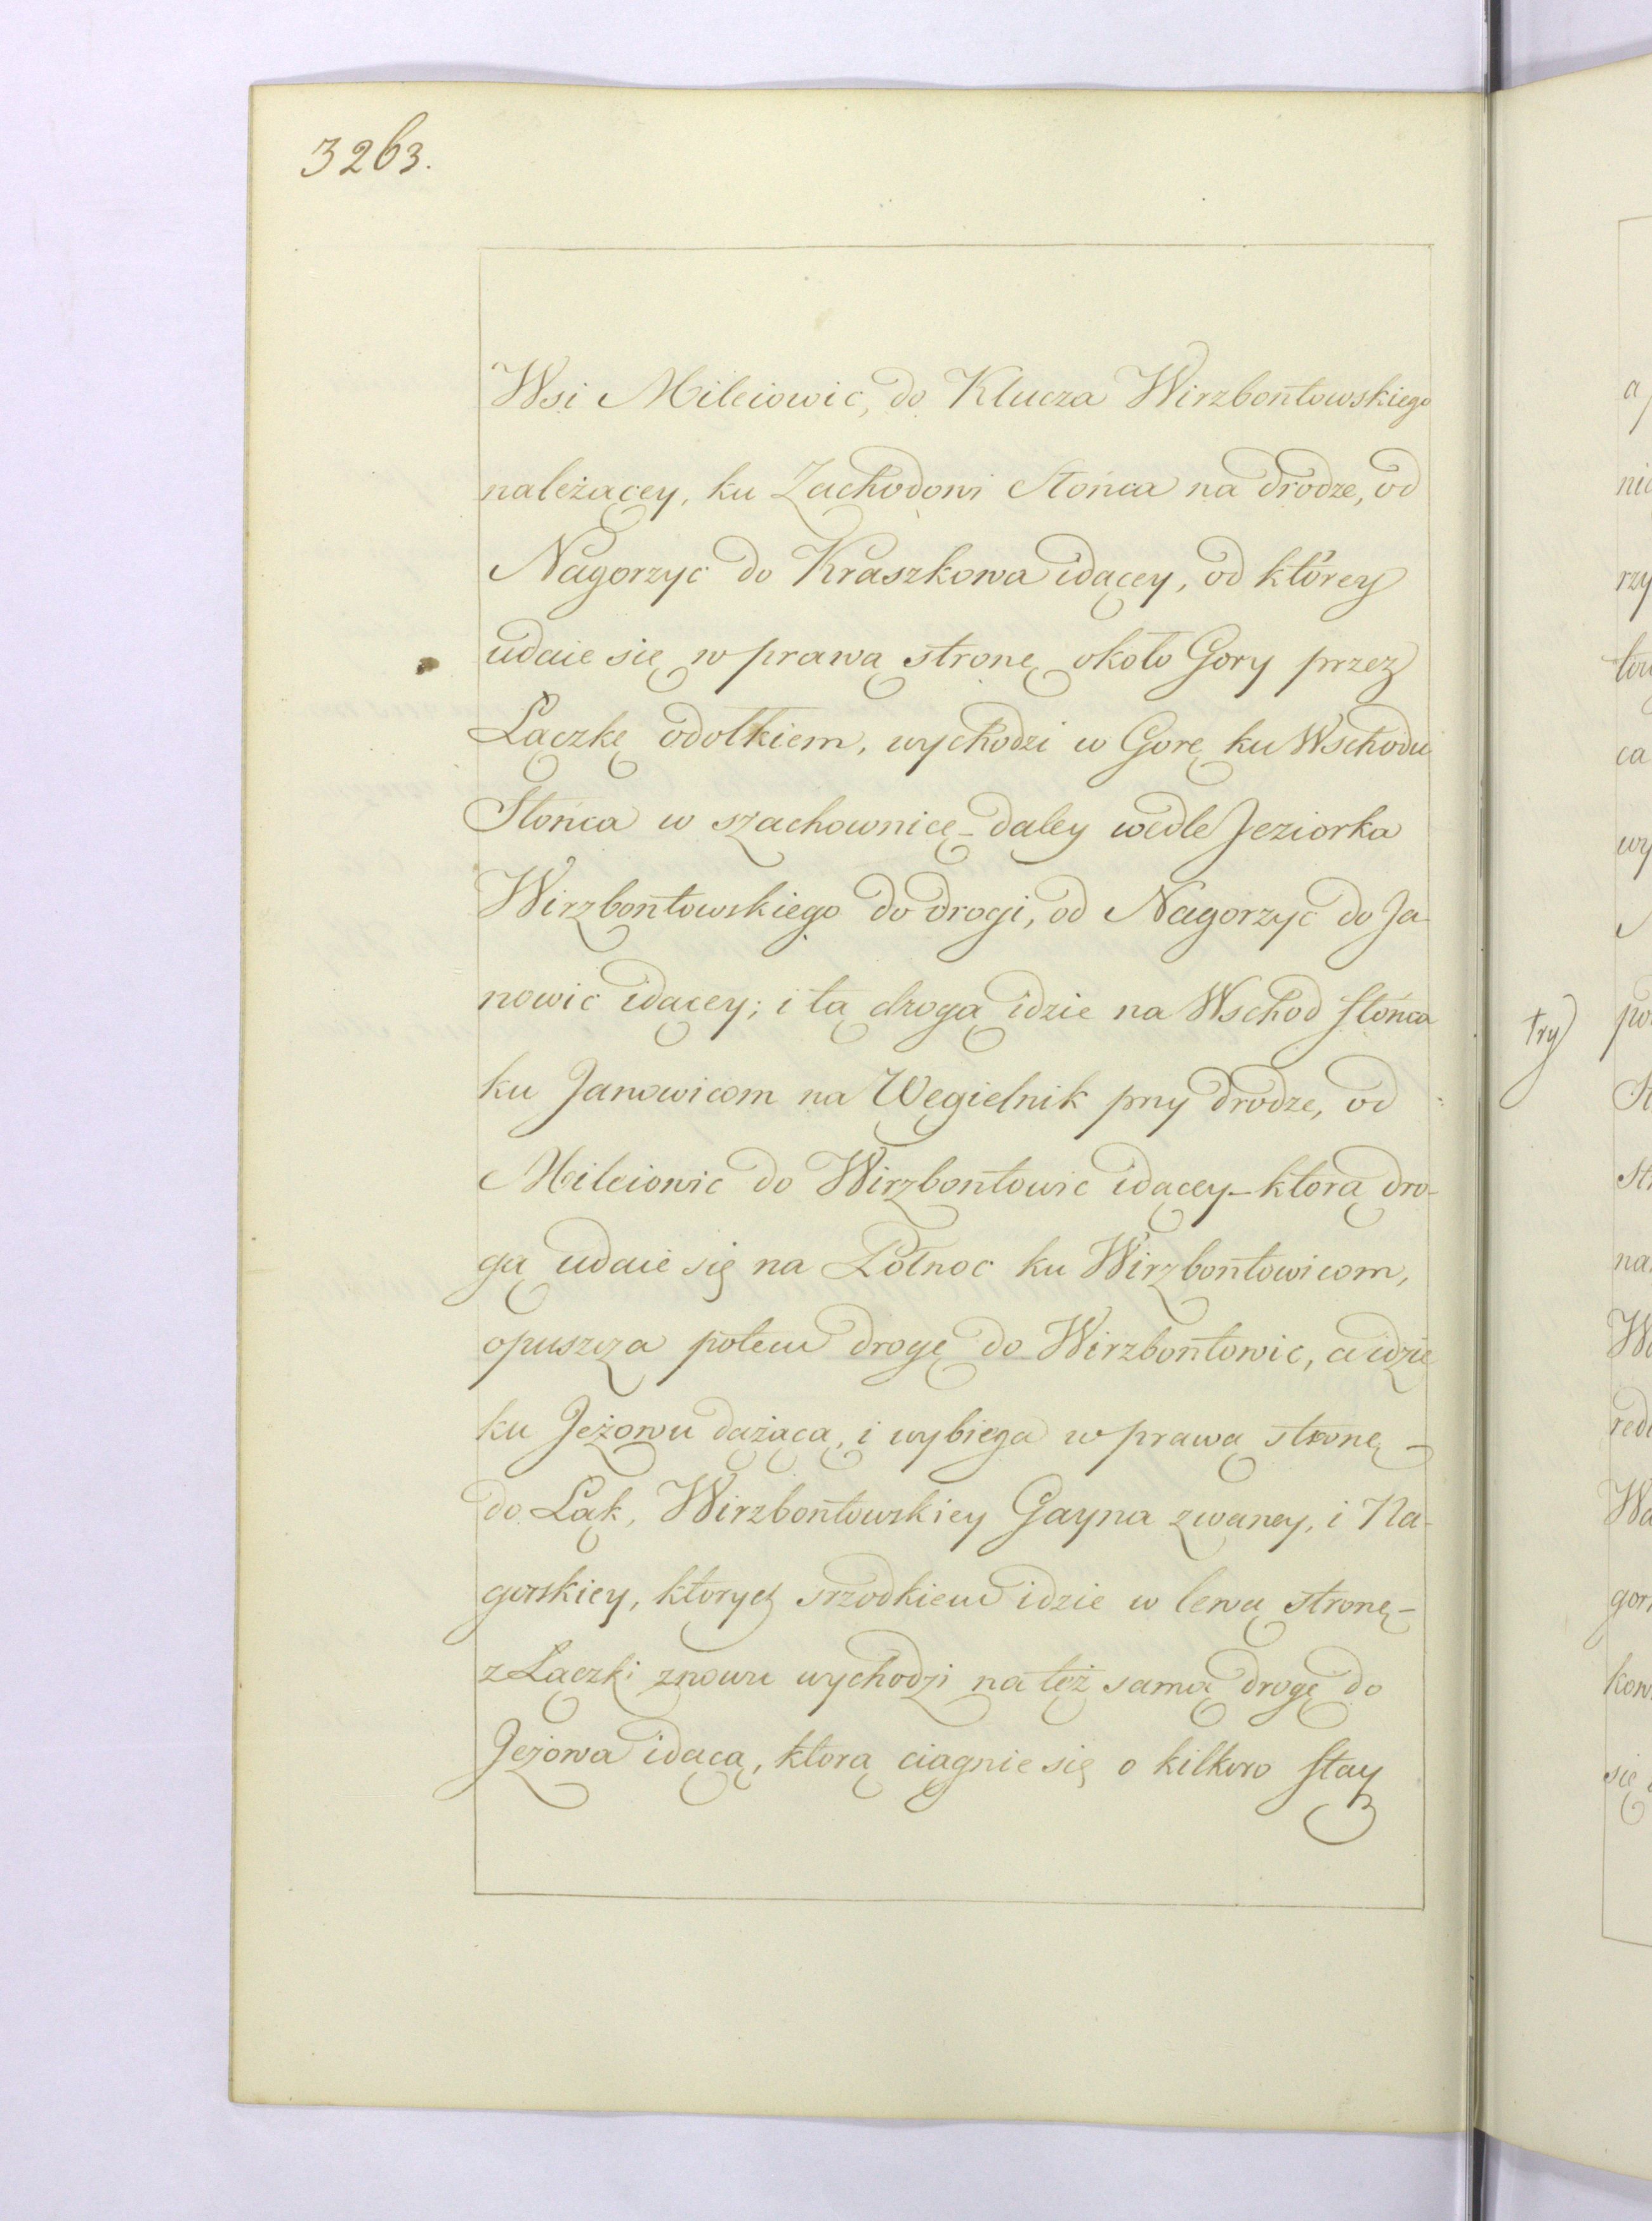 3263.
Wsi Mileiowic, do Klucza Wirzbontowskiego
należącey, ku Zachodowi Słońca na drodze, od
Nagorzyc do Kraszkowa idącey, od którey
udaie się w prawą stronę około Gory przez
Łączkę odołkiem, wychodzi w Gorę ku Wschodu
Słońca w szachownicę – daley wedle Jeziorka
Wirzbontowskiego do drogi, od Nagorzyc do Ja-
nowic idącey; i tą drogą idzie na Wschod słońca
ku Janowicom na Węgielnik przy drodze, od
Mileiowic do Wirzbontowic idącey – ktorą dro-
gą udaie się na Połnoc ku Wirzbontowicom,
opuszcza potem drogę do Wirzbontowic, a idzie
ku Jeżowu dążącą, i wybiega w prawą stronę –
do Łąk, Wirzbontowskiey Gayna zwaney, i Na-
gorskiey, ktorych srzodkiem idzie w lewą stronę –
z Łączki znowu wychodzi na też samą drogę do
Jeżowa idącą, ktorą ciągnie się o kilkoro stay
try